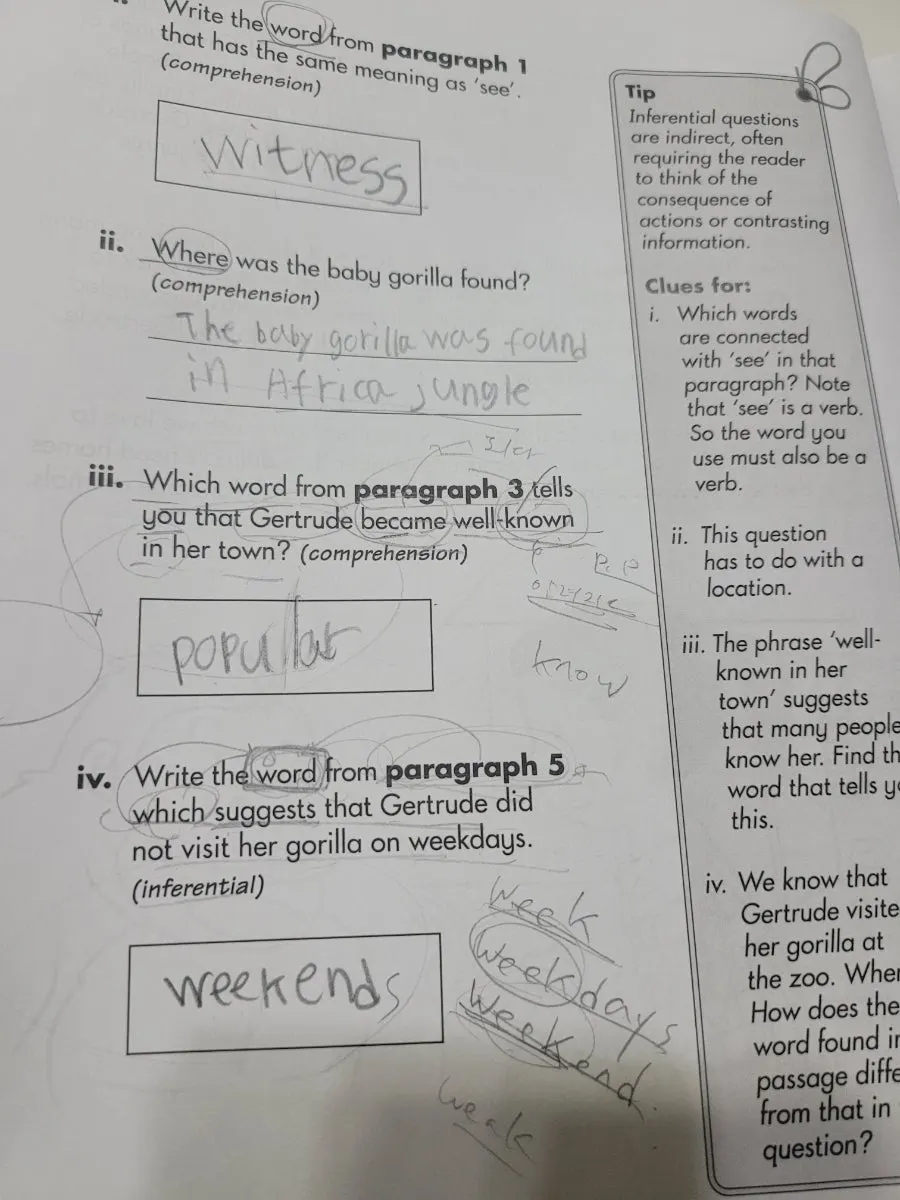 Write the word from paragraph 1
that has the same meaning as 'see'.
(comprehension)
witness
ii. Where was the baby gorilla found?
(comprehension)
The baby gorilla was found
in Africa jungle
iii. Which word from paragraph 3 tells
you that Gertrude became well-known
in her town? (comprehension)
popullar
know
iv. Write the word from paragraph 5
which suggests that Gertrude did
not visit her gorilla on weekdays.
(inferential)
weekends
week
weekdays
weekend
weak
Tip
Inferential questions
are indirect, often
requiring the reader
to think of the
consequence of
actions or contrasting
information.
Clues for:
i. Which words
are connected
with 'see' in that
paragraph? Note
that 'see' is a verb.
So the word you
use must also be a
verb.
ii. This question
has to do with a
location.
iii. The phrase 'well-
known in her
town' suggests
that many people
know her. Find th
word that tells y
this.
iv. We know that
Gertrude visite
her gorilla at
the zoo. When
How does the
word found in
passage diffe
from that in
question?